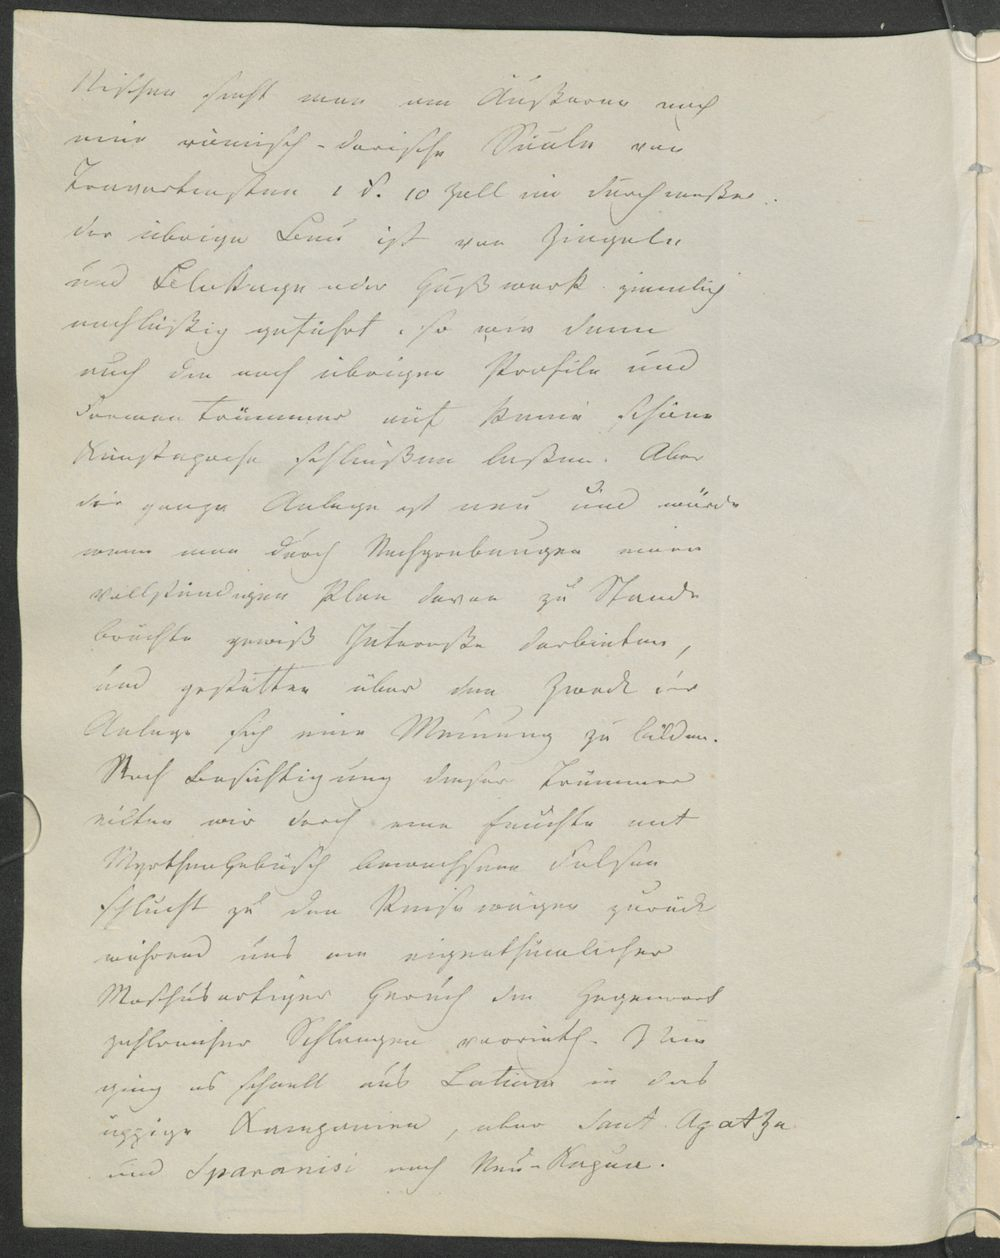 Nischen sieht man am Äußeren noch
eine römisch-dorische Säule von
Travertinstein 1 F. 10 Zoll im Durchmeßer.
der übrige Bau ist von Ziegeln
und oder Gußwerk ziemlich
nachläßig geführt. so wie denn
auch die noch übrigen Profile und
Trümmer auf keine schöne
Kunstepoche schließen laßen. Aber
die ganze Anlage ist neu und würde
wenn man durch Nachgrabungen einen
vollständigen Plan davon zu Stande
brächte gewiß Intereße darbieten,
und gestatten über den Zweck der
Anlage sich eine Meinung zu bilden.
Nach Besichtigung dieser Trümmer
eilten wir durch eine feuchte mit
Myrthengebüsch bewachsene Felsen
schlucht zu den Reisewägen zurück
während uns ein eigenthümlicher
Moschusartiger Geruch die Gegenwart
zahlreicher Schlangen verrieth. Nun
ging es schnell aus Latium in das
üppige Kampanien, über Sant. Agatha
und Sparanisi nach Neu-Kapua.